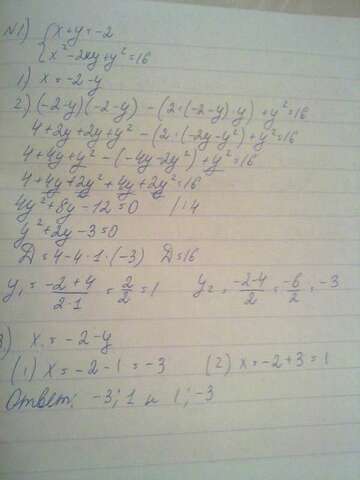 №1) { x+y=-2
x²-2xy+y²=16
1) x=-2-y
2) (-2-y)(-2-y) - (2·(-2-y)·y)+y²=16
4+2y+2y+y² - (2·(-2y-y²)+y²=16
4+4y+y² - (-4y-2y²)+y²=16
4+4y+2y²+4y+2y²=16
4y²+8y-12=0 |:4
y²+2y-3=0
D=4-4·1·(-3) D=16
y₁ = (-2+4)/(2·1) = 2/2 = 1 y₂ = (-2-4)/2 = -6/2 = -3
3) x=-2-y
(1) x=-2-1=-3 (2) x=-2+3=1
Ответ: -3; 1 и 1; -3